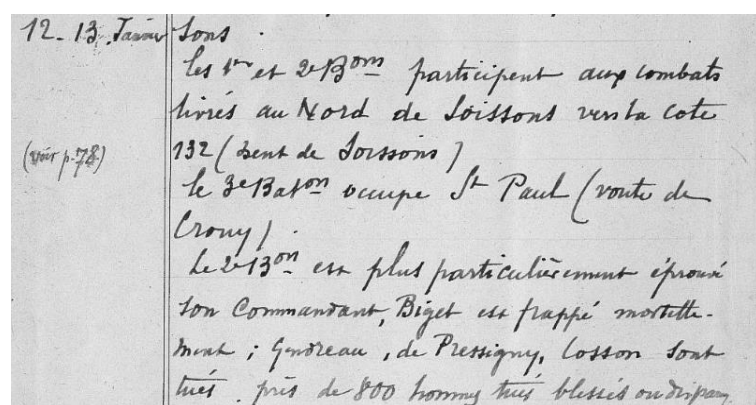 12-13 Janvier sons.
Les 1er et 2e Bons participent aux combats
livrés au Nord de Soissons vers la cote
(voir p. 78) 132 (dent de Soissons)
le 3e Baton occupe St Paul (route de
Crouy).
Le 2e Bon est plus particulièrement éprouvé
son Commandant, Biget est frappé mortelle-
ment ; Gendreau, de Pressigny, Cosson sont
tués. près de 800 hommes tués blessés ou disparus